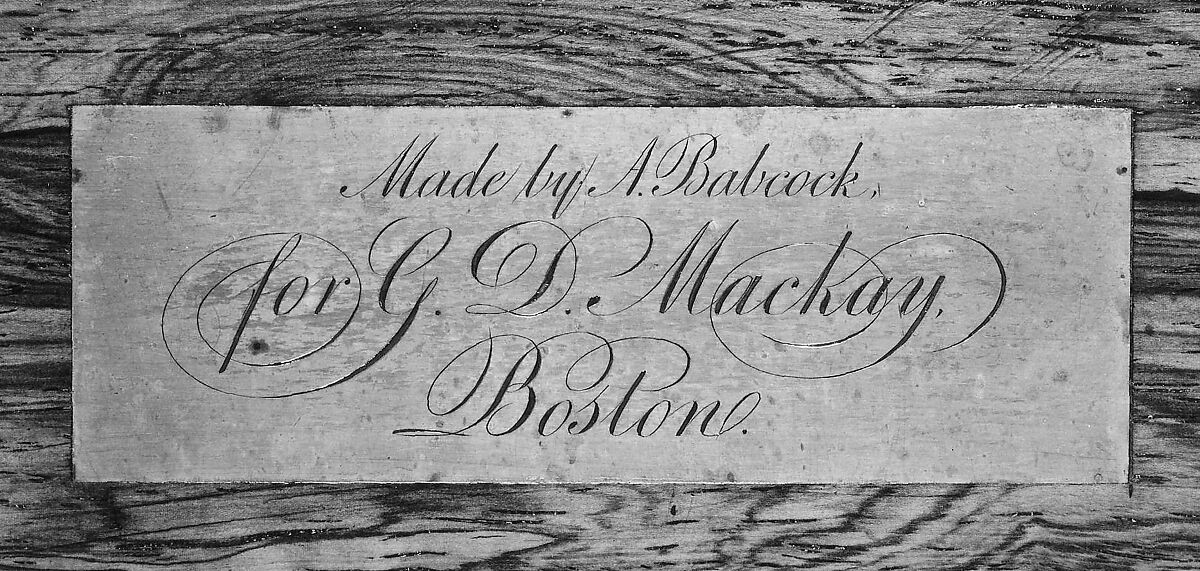 Made by A. Babcock,
for G. D. Mackay,
Boston.